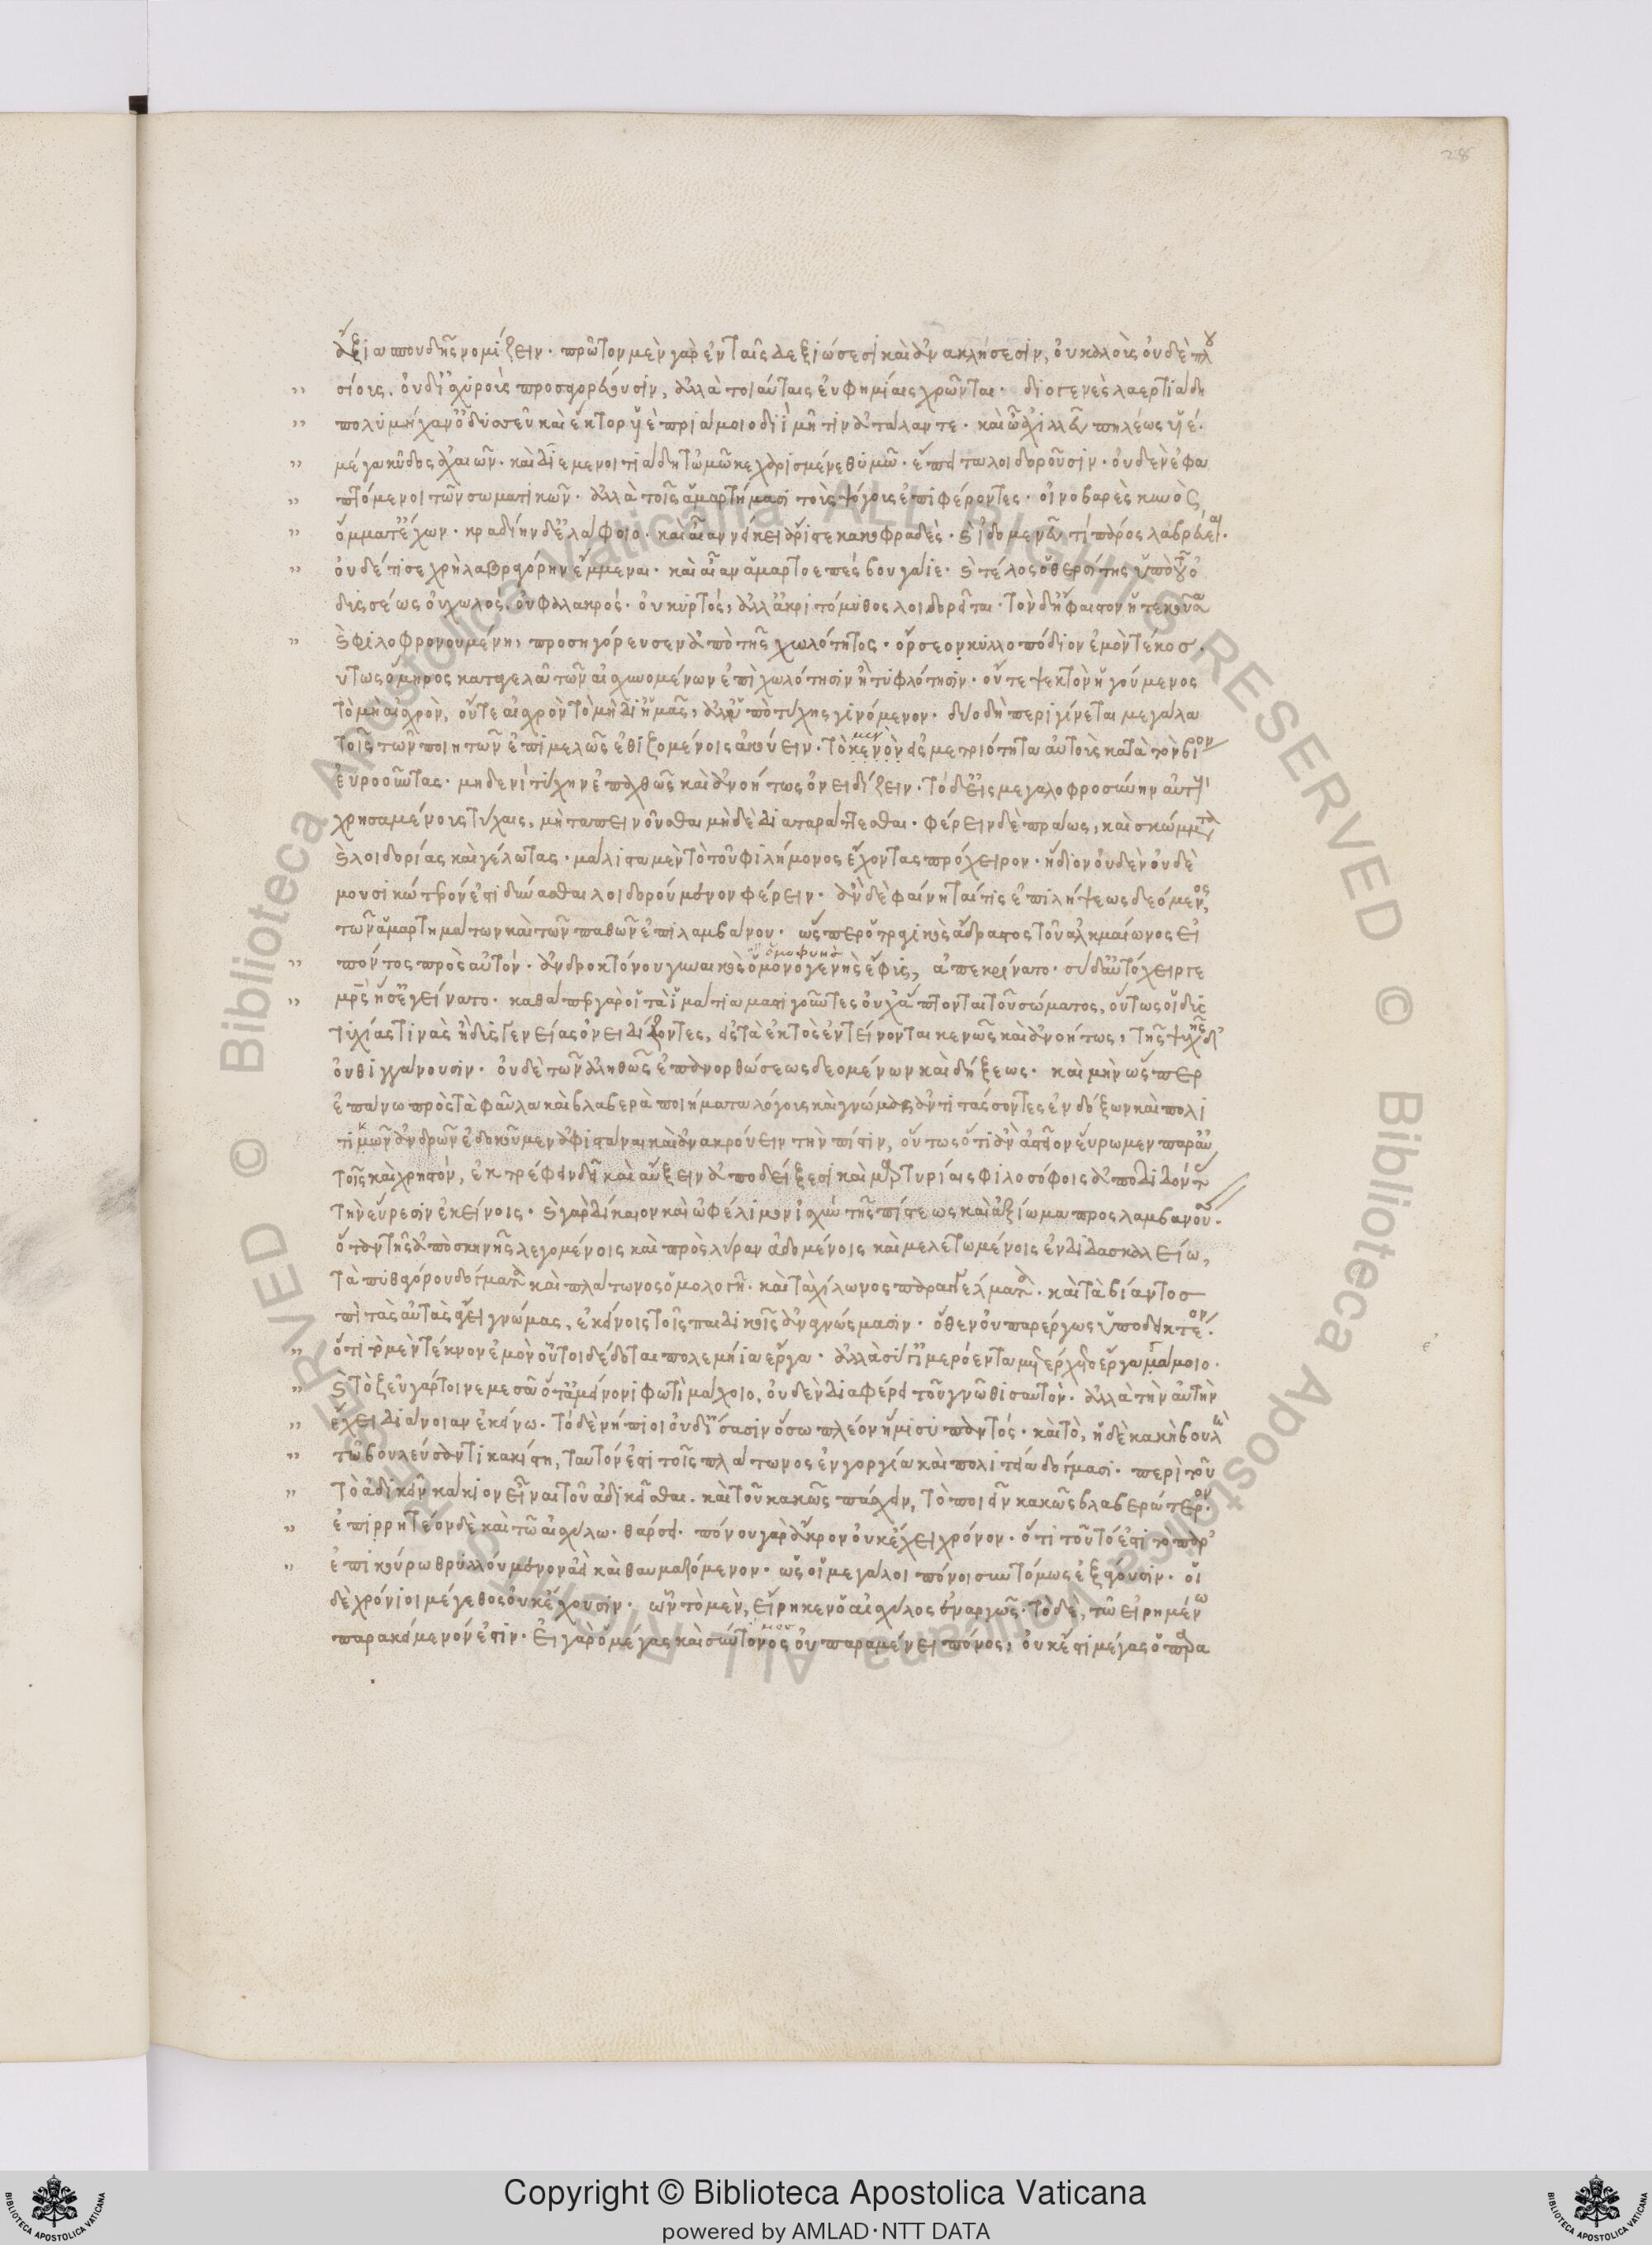 28
ἄξια σπουδῆς νομίζειν. πρῶτον μὲν γὰρ ἐν ταῖς δεξιώσεσι καὶ ἀνακλήσεσιν, οὐ καλοὺς οὐδὲ πλου
σίους, οὐδ' ἰσχυροὺς προσαγορεύουσιν, ἀλλὰ τοιαύταις εὐφημίαις χρῶνται. διογενὲς λαερτιάδη
πολυμήχαν' ὀδυσσεῦ καὶ ἕκτορ υἱὲ πριάμοιο διῒ μῆτιν ἀτάλαντε. καὶ ὦ ἀχιλλεῦ πηλέως υἱέ.
μέγα κῦδος ἀχαιῶν. καὶ δῖε μενοιτιάδη τῷ 'μῷ κεχαρισμένε θυμῷ. ἔπειτα λοιδοροῦσιν. οὐδὲν ἐφα
πτόμενοι τῶν σωματικῶν. ἀλλὰ τοῖς ἁμαρτήμασι τοὺς ψόγους ἐπιφέροντες. οἰνοβαρὲς κυνὸς
ὄμματ' ἔχων. κραδίην δ' ἐλάφοιο. καὶ αἶαν νείκει ἄριστε κακοφραδές. καὶ ἰδομενεῦ τί πάρος λαβρεύεαι.
οὐδέ τι σε χρὴ λαβραγόρην ἔμμεναι. καὶ αἶαν ἁμαρτοεπές βουγάϊε. καὶ τέλος ὁ θερσίτης ὑπὸ τοῦ ὀ
δυσσέως οὐ χωλος, οὐ φαλακρός. οὐ κυρτός, ἀλλ' ἀκριτόμυθος λοιδορεῖται. τὸν δ' ἥφαιστον ἡ τεκοῦσα
καὶ φιλοφρονουμένη, προσηγόρευσεν ἀπὸ τῆς χωλότητος. ὄρσεο κυλλοπόδιον ἐμὸν τέκος.
υτως ὅμηρος καταγελᾷ τῶν αἰσχυνομένων ἐπὶ χωλότησιν ἢ τυφλότησιν. οὔτε ψεκτὸν ἡγούμενος
τὸ μὴ αἰσχρὸν, οὔτε αἰσχρὸν τὸ μὴ δι' ἡμᾶς, ἀλλ' ὑπὸ τύχης γινόμενον. δύο δὴ περιγίνεται μεγάλα
τοῖς τῶν ποιητῶν ἐπιμελῶς ἐθιζομένοις ἀκούειν. τὸ κενὸν μεν εἰς μετριότητα αὐτοὺς κατὰ τὸν βίον
εὐροοῦντας. μηδενὶ τύχην ἐπαχθῶς καὶ ἀνοήτως ὀνειδίζειν. τὸ δ' εἰς μεγαλοφροσύνην αὐτοὺς
χρησαμένους τύχαις, μὴ ταπεινοῦσθαι μηδὲ διαταράττεσθαι. φέρειν δὲ πράως, καὶ σκώμματα
καὶ λοιδορίας καὶ γέλωτας. μάλιστα μὲν τὸ τοῦ φιλήμονος ἔχοντας πρόχειρον. ἥδιον οὐδὲν οὐδὲ
μουσικώτερόν ἐστι δύνασθαι λοιδορούμενον φέρειν. ἂν δὲ φαίνηταί τις ἐπιλήψεως δεόμενος
τῶν ἁμαρτημάτων καὶ τῶν παθῶν ἐπιλαμβάνου. ὥσπερ ὁ τραγικὸς ἄδραστος τοῦ ἀλκμαίωνος εἰ
πόντος πρὸς αὐτόν. ἀνδροκτόνου γυναικὸς ὁμογενὴς ὁμοφυης ἔφυς, ἀπεκρίνατο. συ δ' αὐτόχειρ γε
μητρὸς ἥ σ' ἐγείνατο. καθάπερ γὰρ οἱ τὰ ἱμάτια μαστιγοῦντες οὐχ ἅπτονται τοῦ σώματος, οὕτως οἱ δυς
τυχίας τινὰς ἢ δυςγενείας ὀνειδίζοντες, εἰς τὰ ἐκτὸς ἐντείνονται κενῶς καὶ ἀνοήτως, τῆς ψυχῆς δ'
οὐ θιγγάνουσιν. οὐδὲ τῶν ἀληθῶς ἐπανορθώσεως δεομένων καὶ δήξεως. καὶ μὴν ὥσπερ
ἐπάνω πρὸς τὰ φαῦλα καὶ βλαβερὰ ποιήματα λόγους καὶ γνώμας ἀντιτάσσοντες ἐνδόξων καὶ πολι
τικῶν ἀνδρῶν ἐδοκοῦμεν ἀφιστάναι καὶ ἀνακρούειν τὴν πίστιν, οὕτως ὅ τι ἂν ἀστεῖον εὕρωμεν παρ' αὐ
τοῖς καὶ χρηστόν, ἐκτρέφειν δεῖ καὶ αὔξειν ἀποδείξεσι καὶ μαρτυρίαις φιλοσόφοις ἀποδιδόντας
τὴν εὕρεσιν ἐκείνοις. καὶ γὰρ δίκαιον καὶ ὠφέλιμον ἰσχὺν τῆς πίστεως καὶ ἀξίωμα προσλαμβανούσης.
ὅταν τοῖς ἀπὸ σκηνῆς λεγομένοις καὶ πρὸς λύραν ᾀδομένοις καὶ μελετωμένοις ἐν διδασκαλείω,
τὰ πυθαγόρου δόγματα καὶ πλάτωνος ὁμολογῇ. καὶ τὰ χίλωνος παραγγέλματα. καὶ τὰ βίαντος
πὶ τὰς αὐτὰς ἄγει γνώμας, ἐκείνοις τοῖς παιδικοῖς ἀναγνώσμασιν. ὅθεν οὐ παρέργως ὑποδεικτέον.
ὅτι τὸ μὲν τέκνον ἐμὸν οὔ τοι δέδοται πολεμήϊα ἔργα. ἀλλὰ σύ γ' ἱμερόεντα μετέρχεο ἔργα γάμοιο.
καὶ τὸ ζεὺς γάρ τοι νεμεσᾷ ὅτ' ἀμείνονι φωτὶ μάχοιο, οὐδὲν διαφέρει τοῦ γνῶθι σαυτόν. ἀλλὰ τὴν αὐτὴν
ἔχει διάνοιαν ἐκείνω. τὸ δὲ νήπιοι οὐδ' ἴσασιν ὅσω πλέον ἥμισυ παντός. καὶ τὸ, ἡ δὲ κακὴ βουλὴ
τῷ βουλεύσαντι κακίστη, ταυτόν ἐστι τοῖς πλάτωνος ἐν γοργία καὶ πολιτεία δόγμασι. περὶ τοῦ
τὸ ἀδικεῖν κάκιον εἶναι τοῦ ἀδικεῖσθαι. καὶ τοῦ κακῶς πάσχειν, τὸ ποιεῖν κακῶς βλαβερώτερον.
ἐπιρρητέον δὲ καὶ τῷ αἰσχύλω. θάρσει. πόνου γὰρ ἄκρον οὐκ ἔχει χρόνον. ὅτι τοῦτό ἐστι τὸ παρ'
ἐπικούρω θρυλλούμενον ἀεὶ καὶ θαυμαζόμενον. ὡς οἱ μεγάλοι πόνοι συντόμως ἐξάγουσιν. οἱ
δὲ χρόνιοι μέγεθος οὐκ ἔχουσιν. ὧν τὸ μὲν, εἴρηκεν ὁ αἰσχύλος ἐναργῶς. τὸ δὲ, τῷ εἰρημένω
παρακείμενόν ἐστιν. εἰ γὰρ ὁ μέγας καὶ σύντονος οὐ παραμένει πόνος, οὐκ ἔστι μέγας ὁ παρα
Copyright © Biblioteca Apostolica Vaticana
powered by AMLAD·NTT DATA